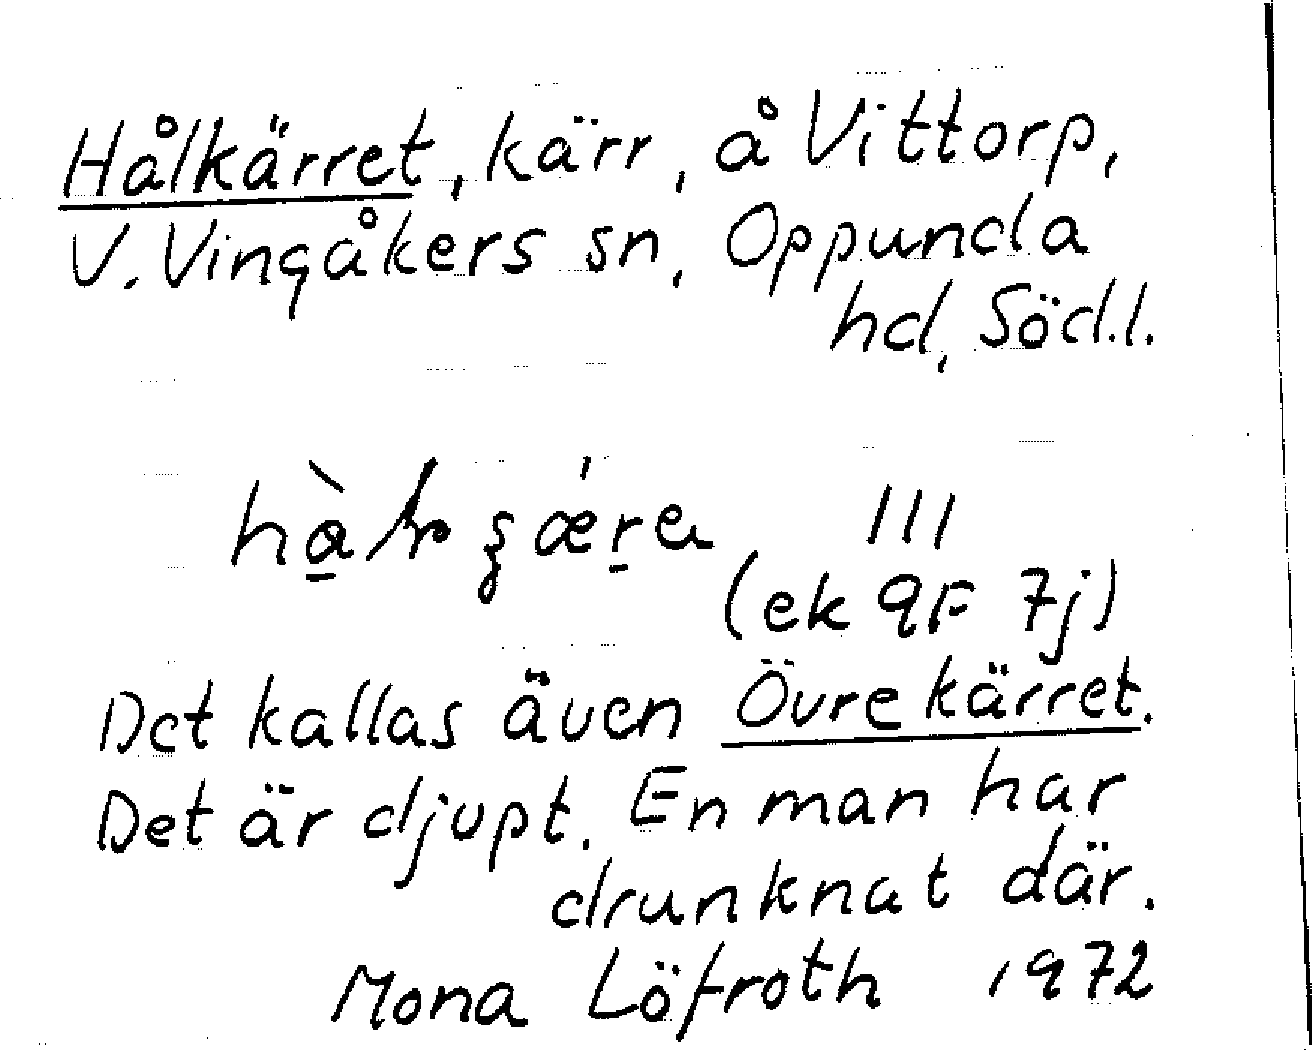 Hålkärret, kärr, å Vittorp,
V. Vingåkers sn, Oppunda
hd, Södl.
III
(ek 9F 7j)
Det kallas även Övre kärret.
Det är djupt. En man har
drunknat där.
Mona Löfroth 1972